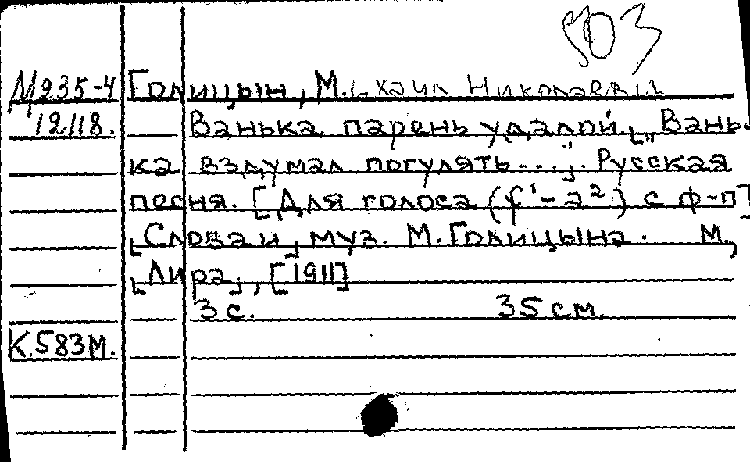 503
М235-4 Голицын, Михаил Николаевич
12118. Ванька парень удалой. "Вань-
ка вздумал погулять...". Русская
песня. [Для голоса (f¹-a²) с ф-п]
Слова и муз. М. Голицына. М.,
"Лира", [1911]
3 с. 35 см.
К.583М.